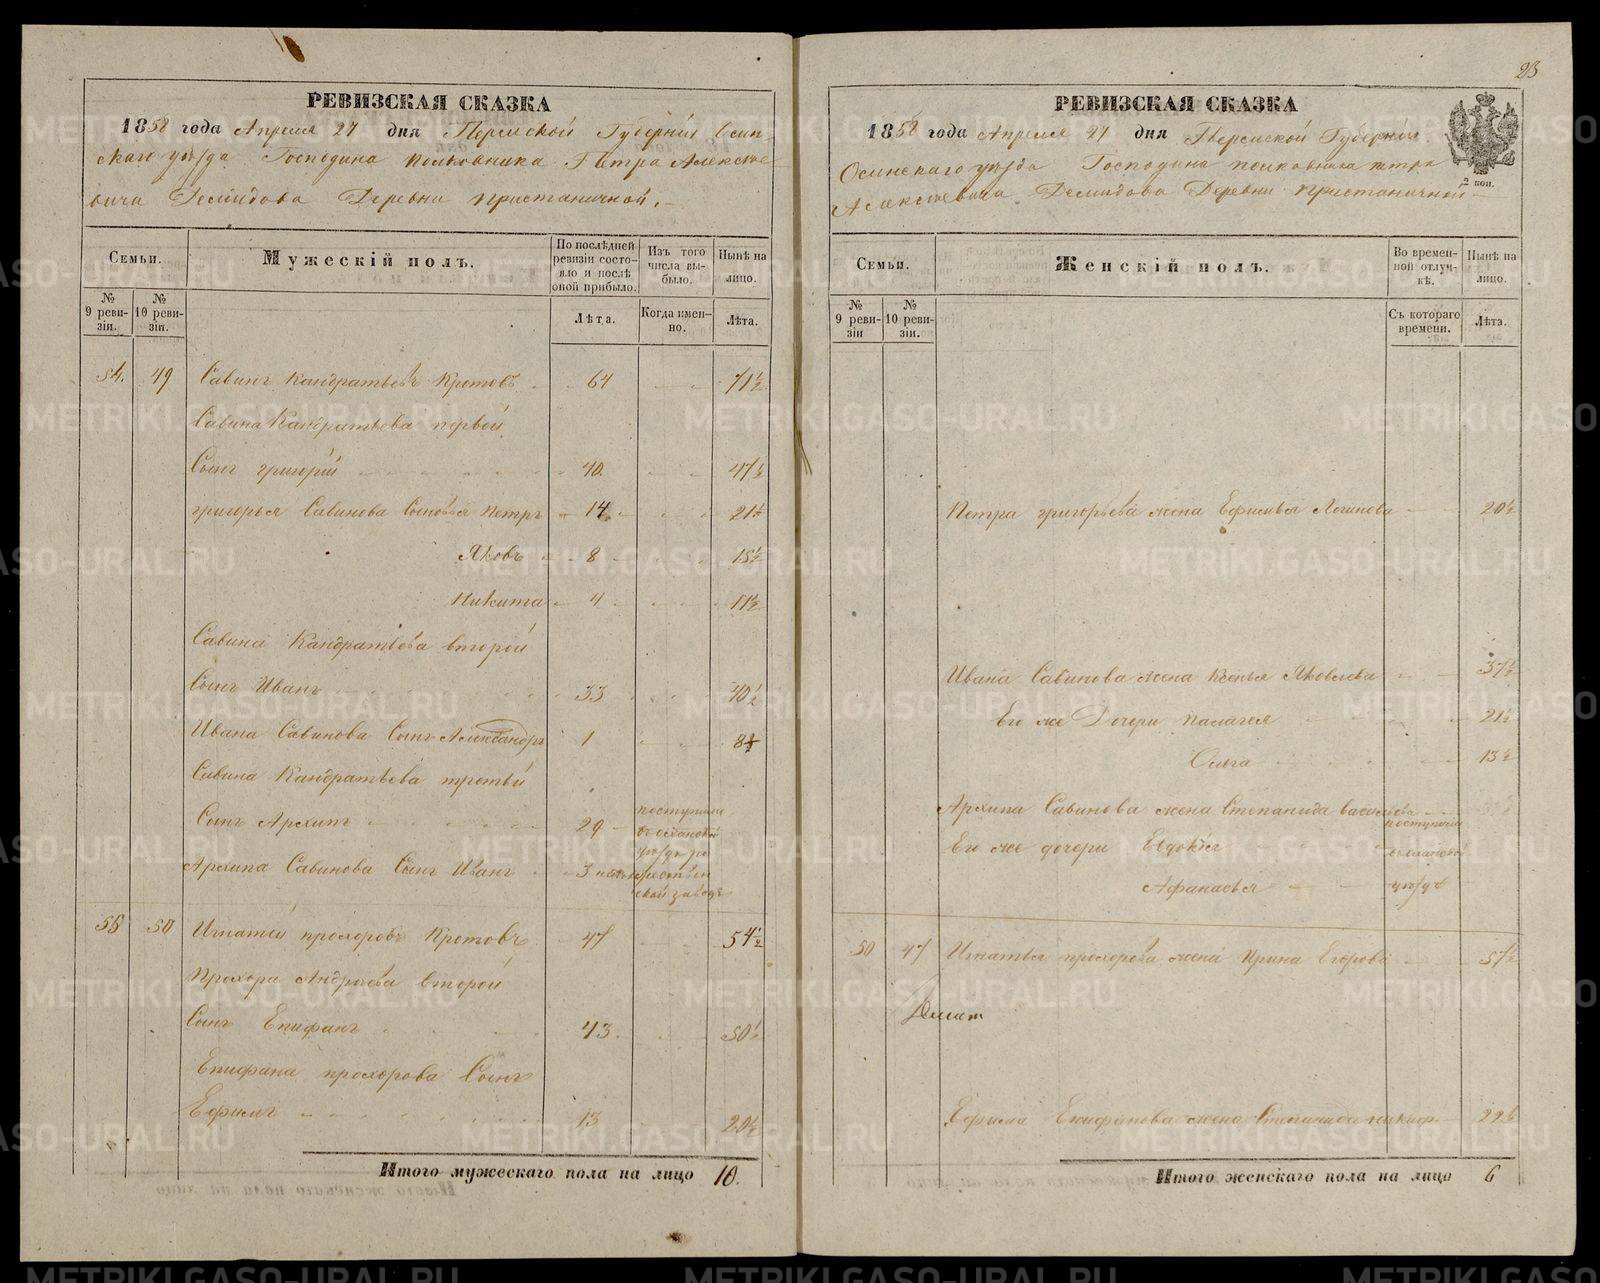 РЕВИЗСКАЯ СКАЗКА
1858 года Апреля 27 дня Пермской Губернiи Осин-
скаго уѣзда Господина полковника Петра Алексѣе
вича Демидова Деревни Пристаничной.
Семьи.
Мужескiй полъ.
По послѣдней ревизiи состояло и послѣ оной прибыло.
Изъ того числа выбыло.
Нынѣ на лицо.
№ 9 ревизiи.
№ 10 ревизiи.
Лѣта.
Когда именно.
Лѣта.
54. 49 Савинъ Кандратьевъ Кротовъ 64 71½
Савина Кандратьева первой
Сынъ григорiй 40. 47½
григорья Савинова Сыновья Петръ 14 21½
Яковъ 8 15½
Никита 4 11½
Савина Кандратьева второй
Сынъ Иванъ 33 40½
Ивана Савинова Сынъ Александръ 1 8½
Савина Кандратьева третьй
Сынъ Архипъ 29 поступили
уѣздъ
Архипа Савинова Сынъ Иванъ 3
ской заводъ
55 50 Игнатей прохоровъ Кротовъ 47 54½
Прохора Андрѣева второй
Сынъ Епифанъ 43. 50½
Епифана прохорова Сынъ
Ефимъ 13 20½
Итого мужескаго пола на лицо 10.
23
РЕВИЗСКАЯ СКАЗКА
1858 года Апреля 27 дня Пермской Губернiи
Осинскаго уѣзда Господина полковника петра
Алексѣевича Демидова Деревни пристаничной
2 коп.
Семьи.
Женскiй полъ.
Во временной отлучкѣ.
Нынѣ на лицо.
№ 9 ревизiи
№ 10 ревизiи.
Съ котораго времени.
Лѣта.
Петра григорьева жена Ефимья Логинова 20½
Ивана Савинова жена Ксенья Яковлева 37½
Его же Дочери палагея 21½
Ольга 13½
Архипа Савинова жена Степанида васильева
поступили
Его же дочери Евдокiя
Афанасья уѣздъ
50 47 Игнатья прохорова жена Ирина Егорова 57½
Ефима Епифанова жена Степанида 22½
Итого женскаго пола на лицо 6
METRIKI.GASO-URAL.RU